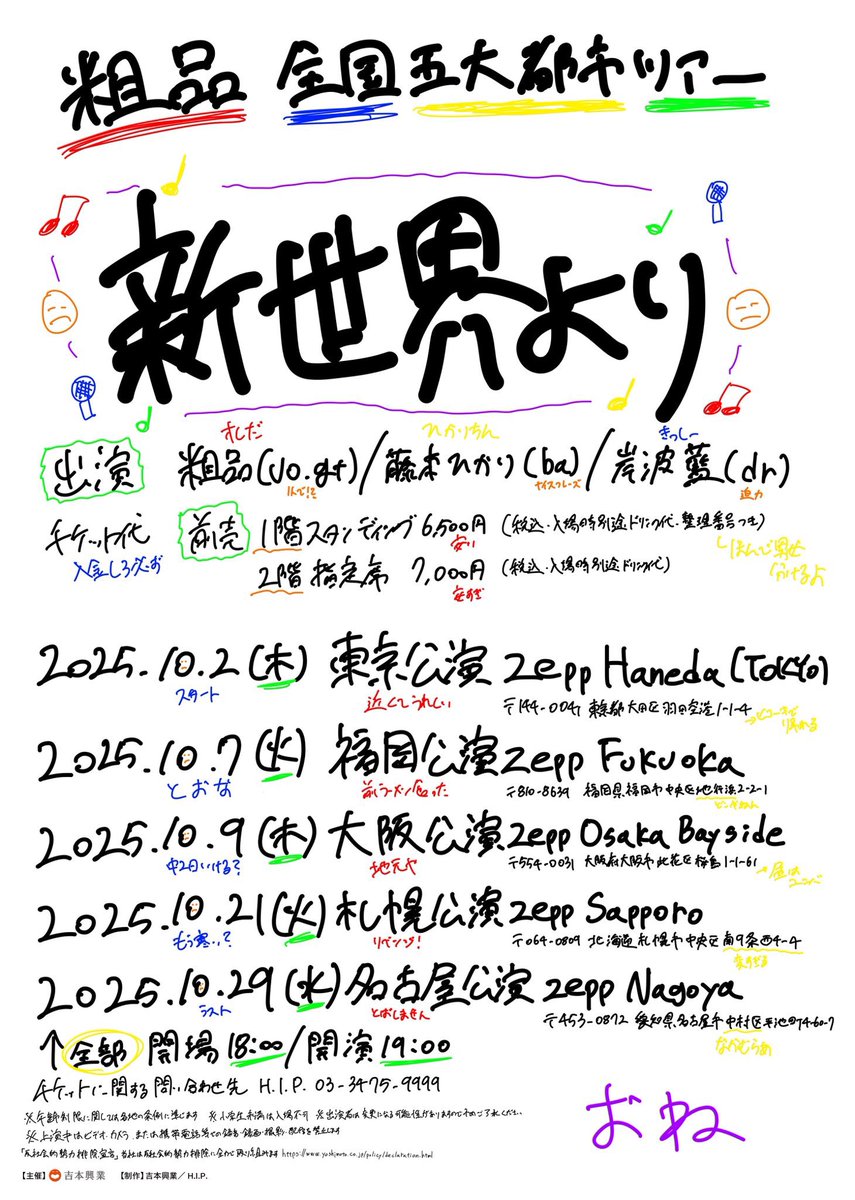 粗品 全国五大都市ツアー
新世界より
そしだ ひかりちゃん きっしー
出演 粗品(vo.gt)/藤本ひかり(ba)/岸波藍(dr)
なんで!? ナイスフレーズ 迫力
チケット代 前売 1階スタンディング 6,500円 (税込・入場時別途ドリンク代・整理番号つき)
安い
2階指定席 7,000円 (税込・入場時別途ドリンク代)
安すぎ
2025.10.2(木) 東京公演 Zepp Haneda (TOKYO)
スタート 近くてうれしい 〒144-0041 東京都大田区羽田空港1-1-4
2025.10.7(火) 福岡公演 Zepp Fukuoka
とおな 前ラーメン食った 〒810-8639 福岡県福岡市中央区地行浜2-2-1
2025.10.9(木) 大阪公演 Zepp Osaka Bayside
中2日いける? 地元や 〒554-0031 大阪府大阪市此花区桜島1-1-61
2025.10.21(火) 札幌公演 Zepp Sapporo
もう寒い? リベンジ! 〒064-0809 北海道札幌市中央区南9条西4-4
2025.10.29(水) 名古屋公演 Zepp Nagoya
ラスト とばしません 〒453-0872 愛知県名古屋市中村区平池町4-60-7
↑全部 開場18:00/開演19:00
チケットに関する問い合わせ先 H.I.P. 03-3475-9999
※年齢制限に関しては各地の条例に準じます ※小学生未満は入場不可 ※出演者は変更になる可能性がありますので予めご了承ください。
※上演中はビデオ・カメラ または携帯電話等での録音・録画・撮影・配信を禁止します
「反社会的勢力排除宣言」当社は反社会的勢力排除に全力で取り組みます https://www.yoshimoto.co.jp/policy/declaration.html
おね
【主催】吉本興業 【制作】吉本興業／H.I.P.